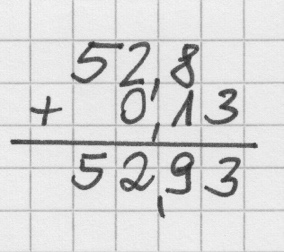 52,8
+ 0,13
52,93